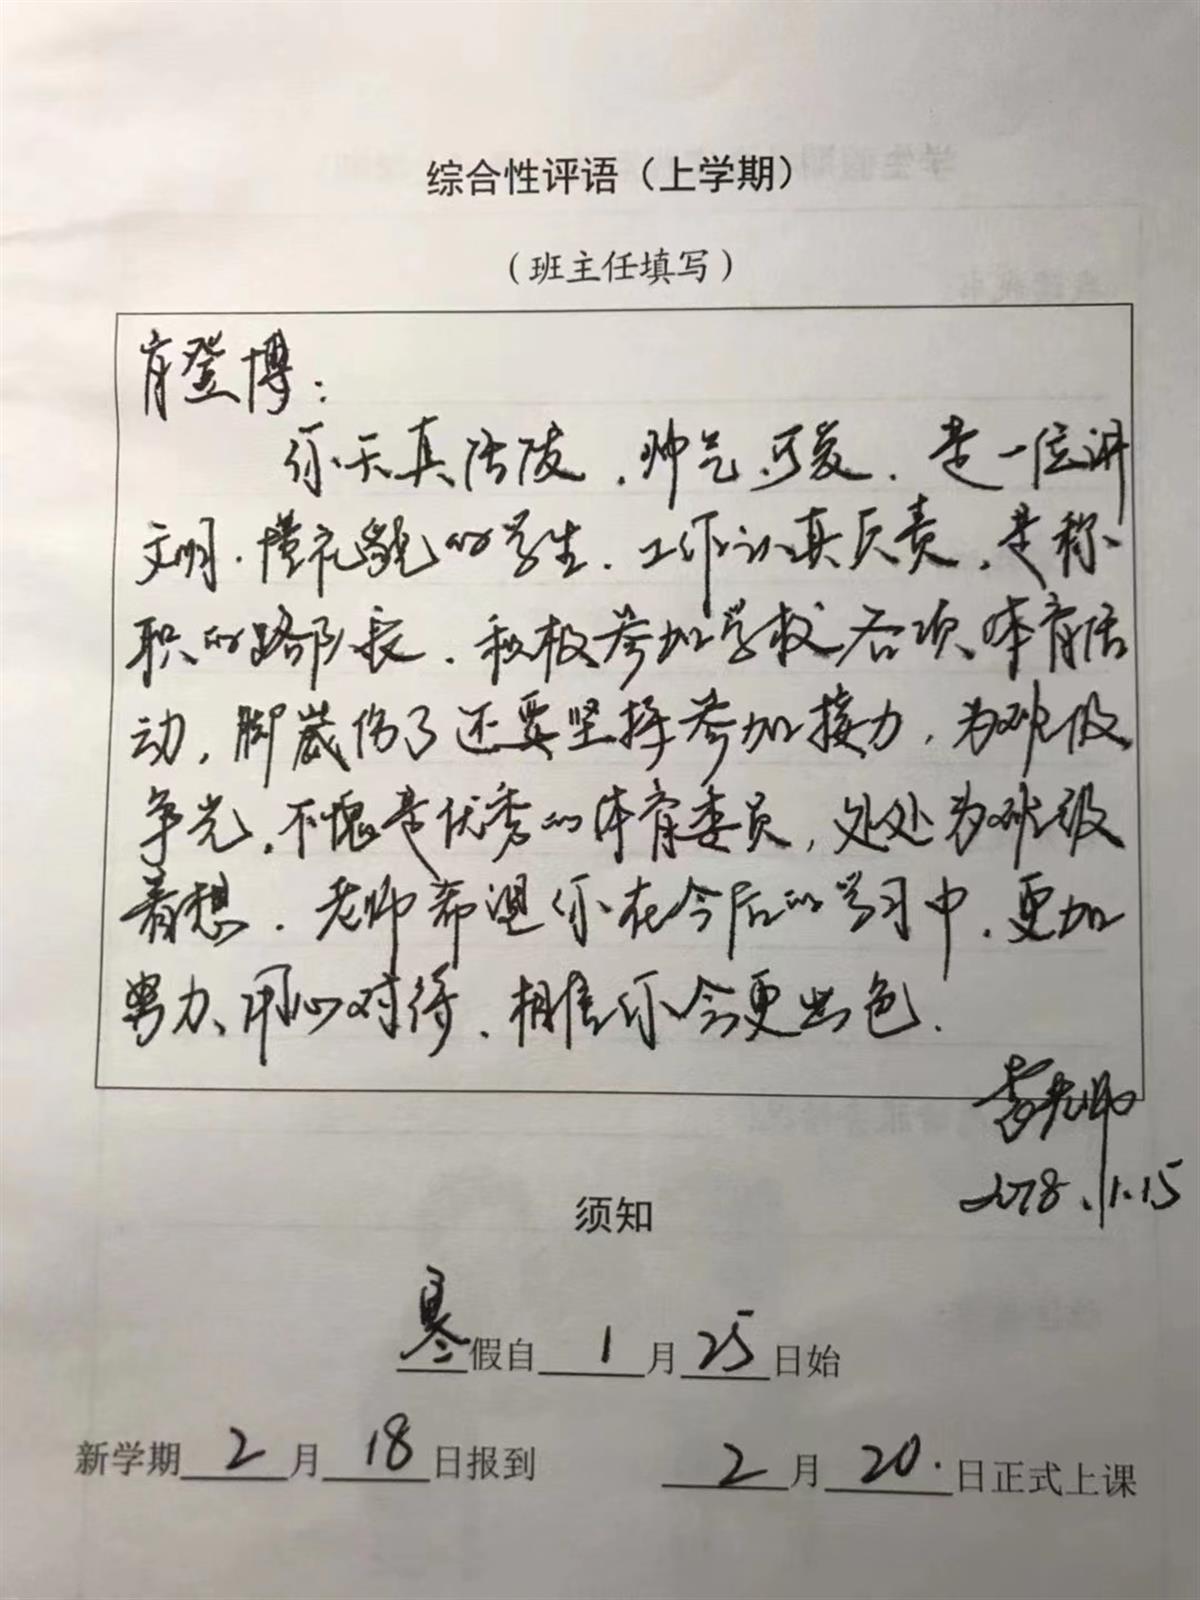 综合性评语（上学期）
（班主任填写）
肖登博：
你天真活波，帅气可爱．是一位讲
文明．懂礼貌的学生．工作认真负责，是称
职的路队长．积极参加学校各项体育活
动，脚崴伤了还要坚持参加接力，为班级
争光，不愧是优秀的体育委员，处处为班级
着想．老师希望你在今后的学习中，更加
努力、用心对待，相信你会更出色．
李老师
2018.1.15
须知
寒假自1月25日始
新学期2月18日报到 2月20.日正式上课